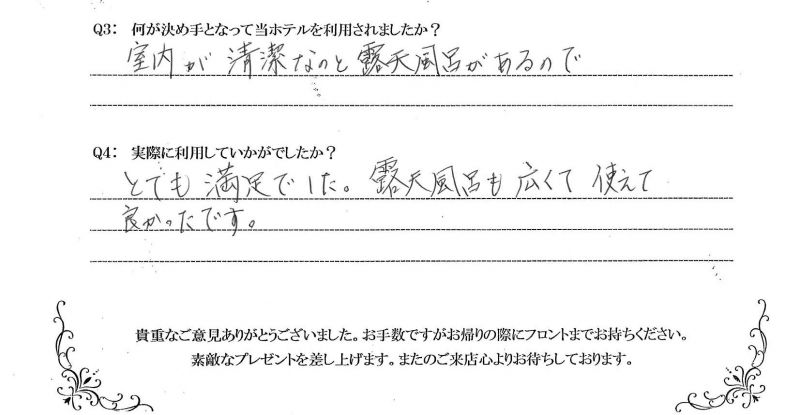 Q3： 何が決め手となって当ホテルを利用されましたか？
室内が清潔なのと露天風呂があるので
Q4： 実際に利用していかがでしたか？
とても満足でした。露天風呂も広くて使えて
良かったです。
貴重なご意見ありがとうございました。お手数ですがお帰りの際にフロントまでお持ちください。
素敵なプレゼントを差し上げます。またのご来店心よりお待ちしております。